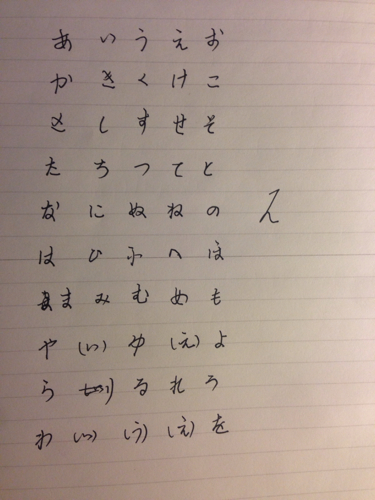 あ い う え お
か き く け こ
さ し す せ そ
た ち つ て と
な に ぬ ね の
ん
は ひ ふ へ ほ
ま み む め も
や (い) ゆ (え) よ
ら り る れ ろ
わ (い) (う) (え) を